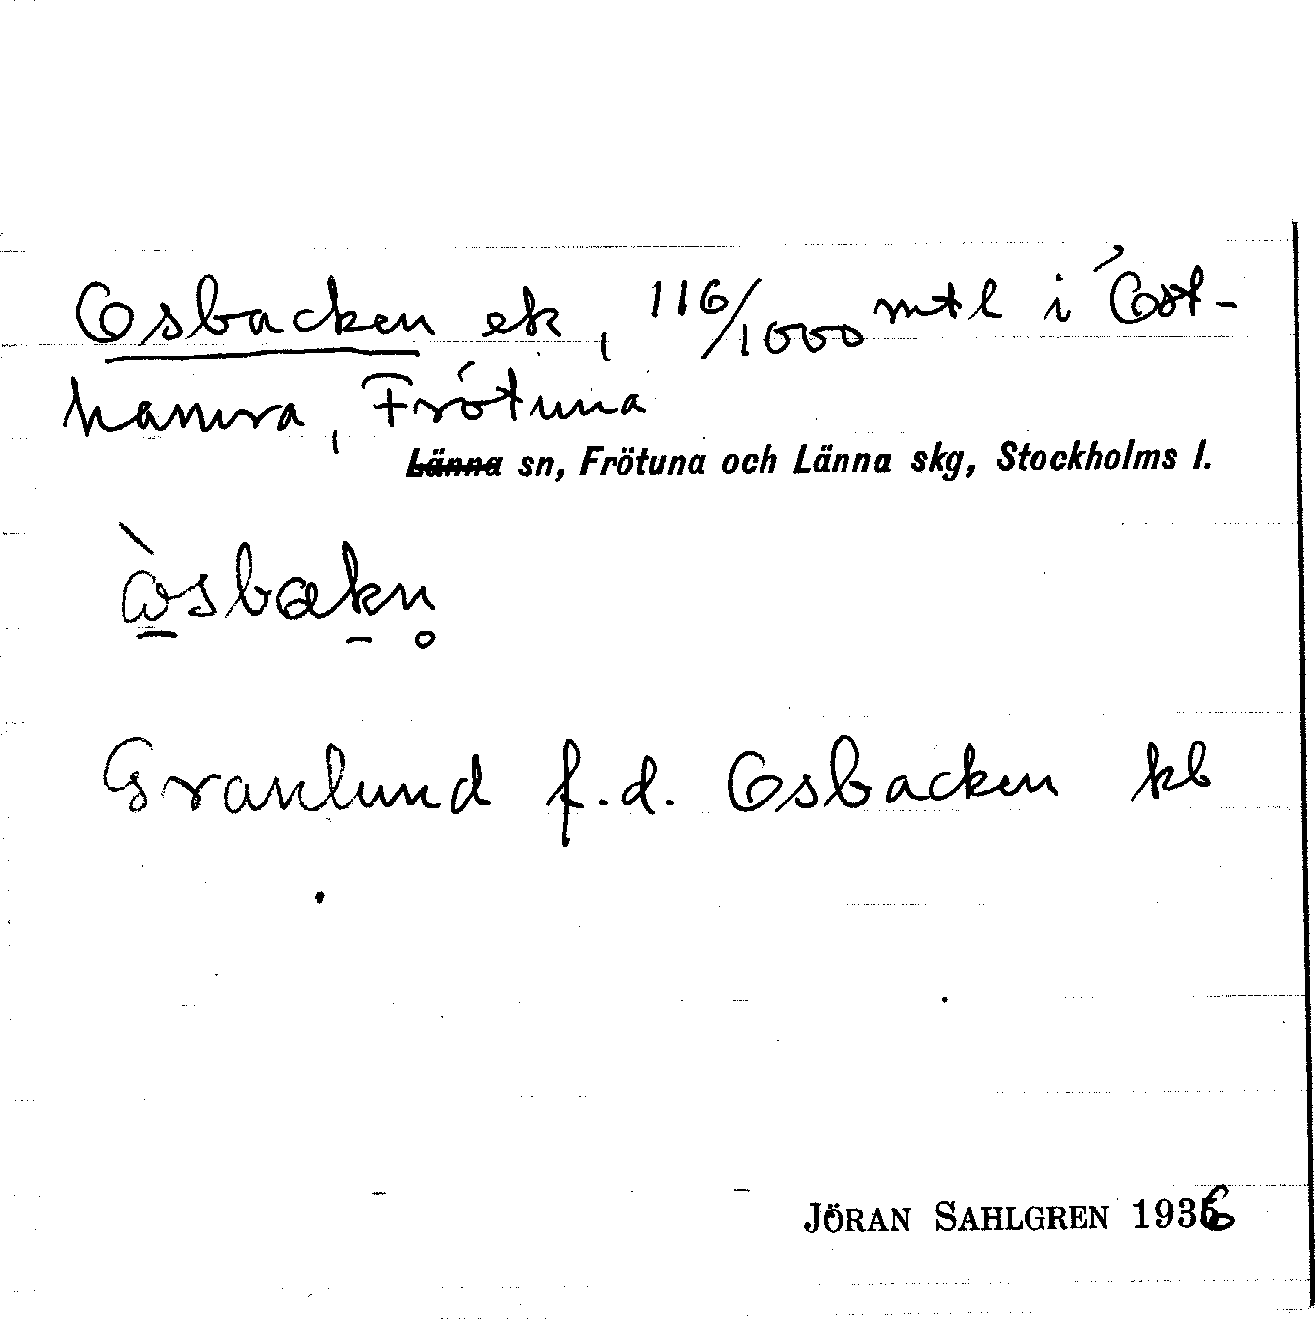 Osbacken ek, 116/1000 mtl i Öst-
hamra, Frötuna
Länna sn, Frötuna och Länna skg, Stockholms l.
Granlund f.d. Osbacken kb
JÖRAN SAHLGREN 1936